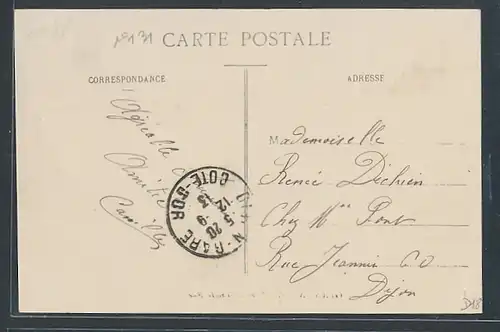 N° 131
CARTE POSTALE
CORRESPONDANCE
ADRESSE
Agréable
Amitié
Camille
DIJON-GARE
COTE-D'OR
Mademoiselle
Renée
Chez Mme Pont
Rue Jeannin 60
Dijon